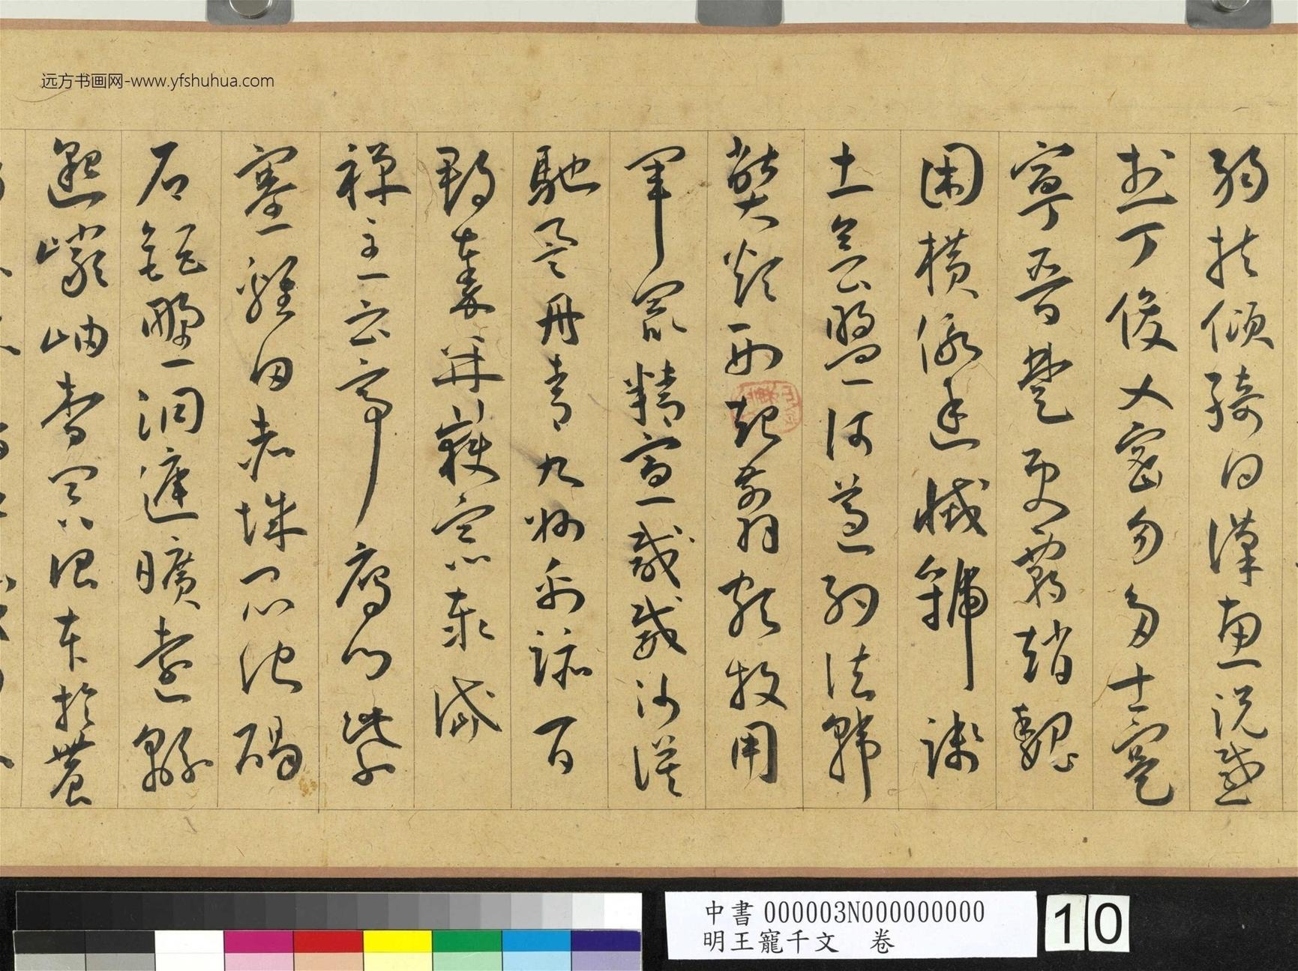 弱扶傾綺回漢惠說感
武丁俊乂密勿多士寔
寧晉楚更霸趙魏
困橫假途滅虢踐
土會盟何遵約法韓
弊煩刑起翦頗牧用
軍最精宣威威沙漠
馳譽丹青九州禹跡百
郡秦并嶽宗泰岱
禪主云亭雁門紫
塞雞田赤城昆池碣
石鉅野洞庭曠遠緜
邈巖岫杳冥治本於農
远方书画网-www.yfshuhua.com
中書 000003N000000000
明王寵千文 卷
10